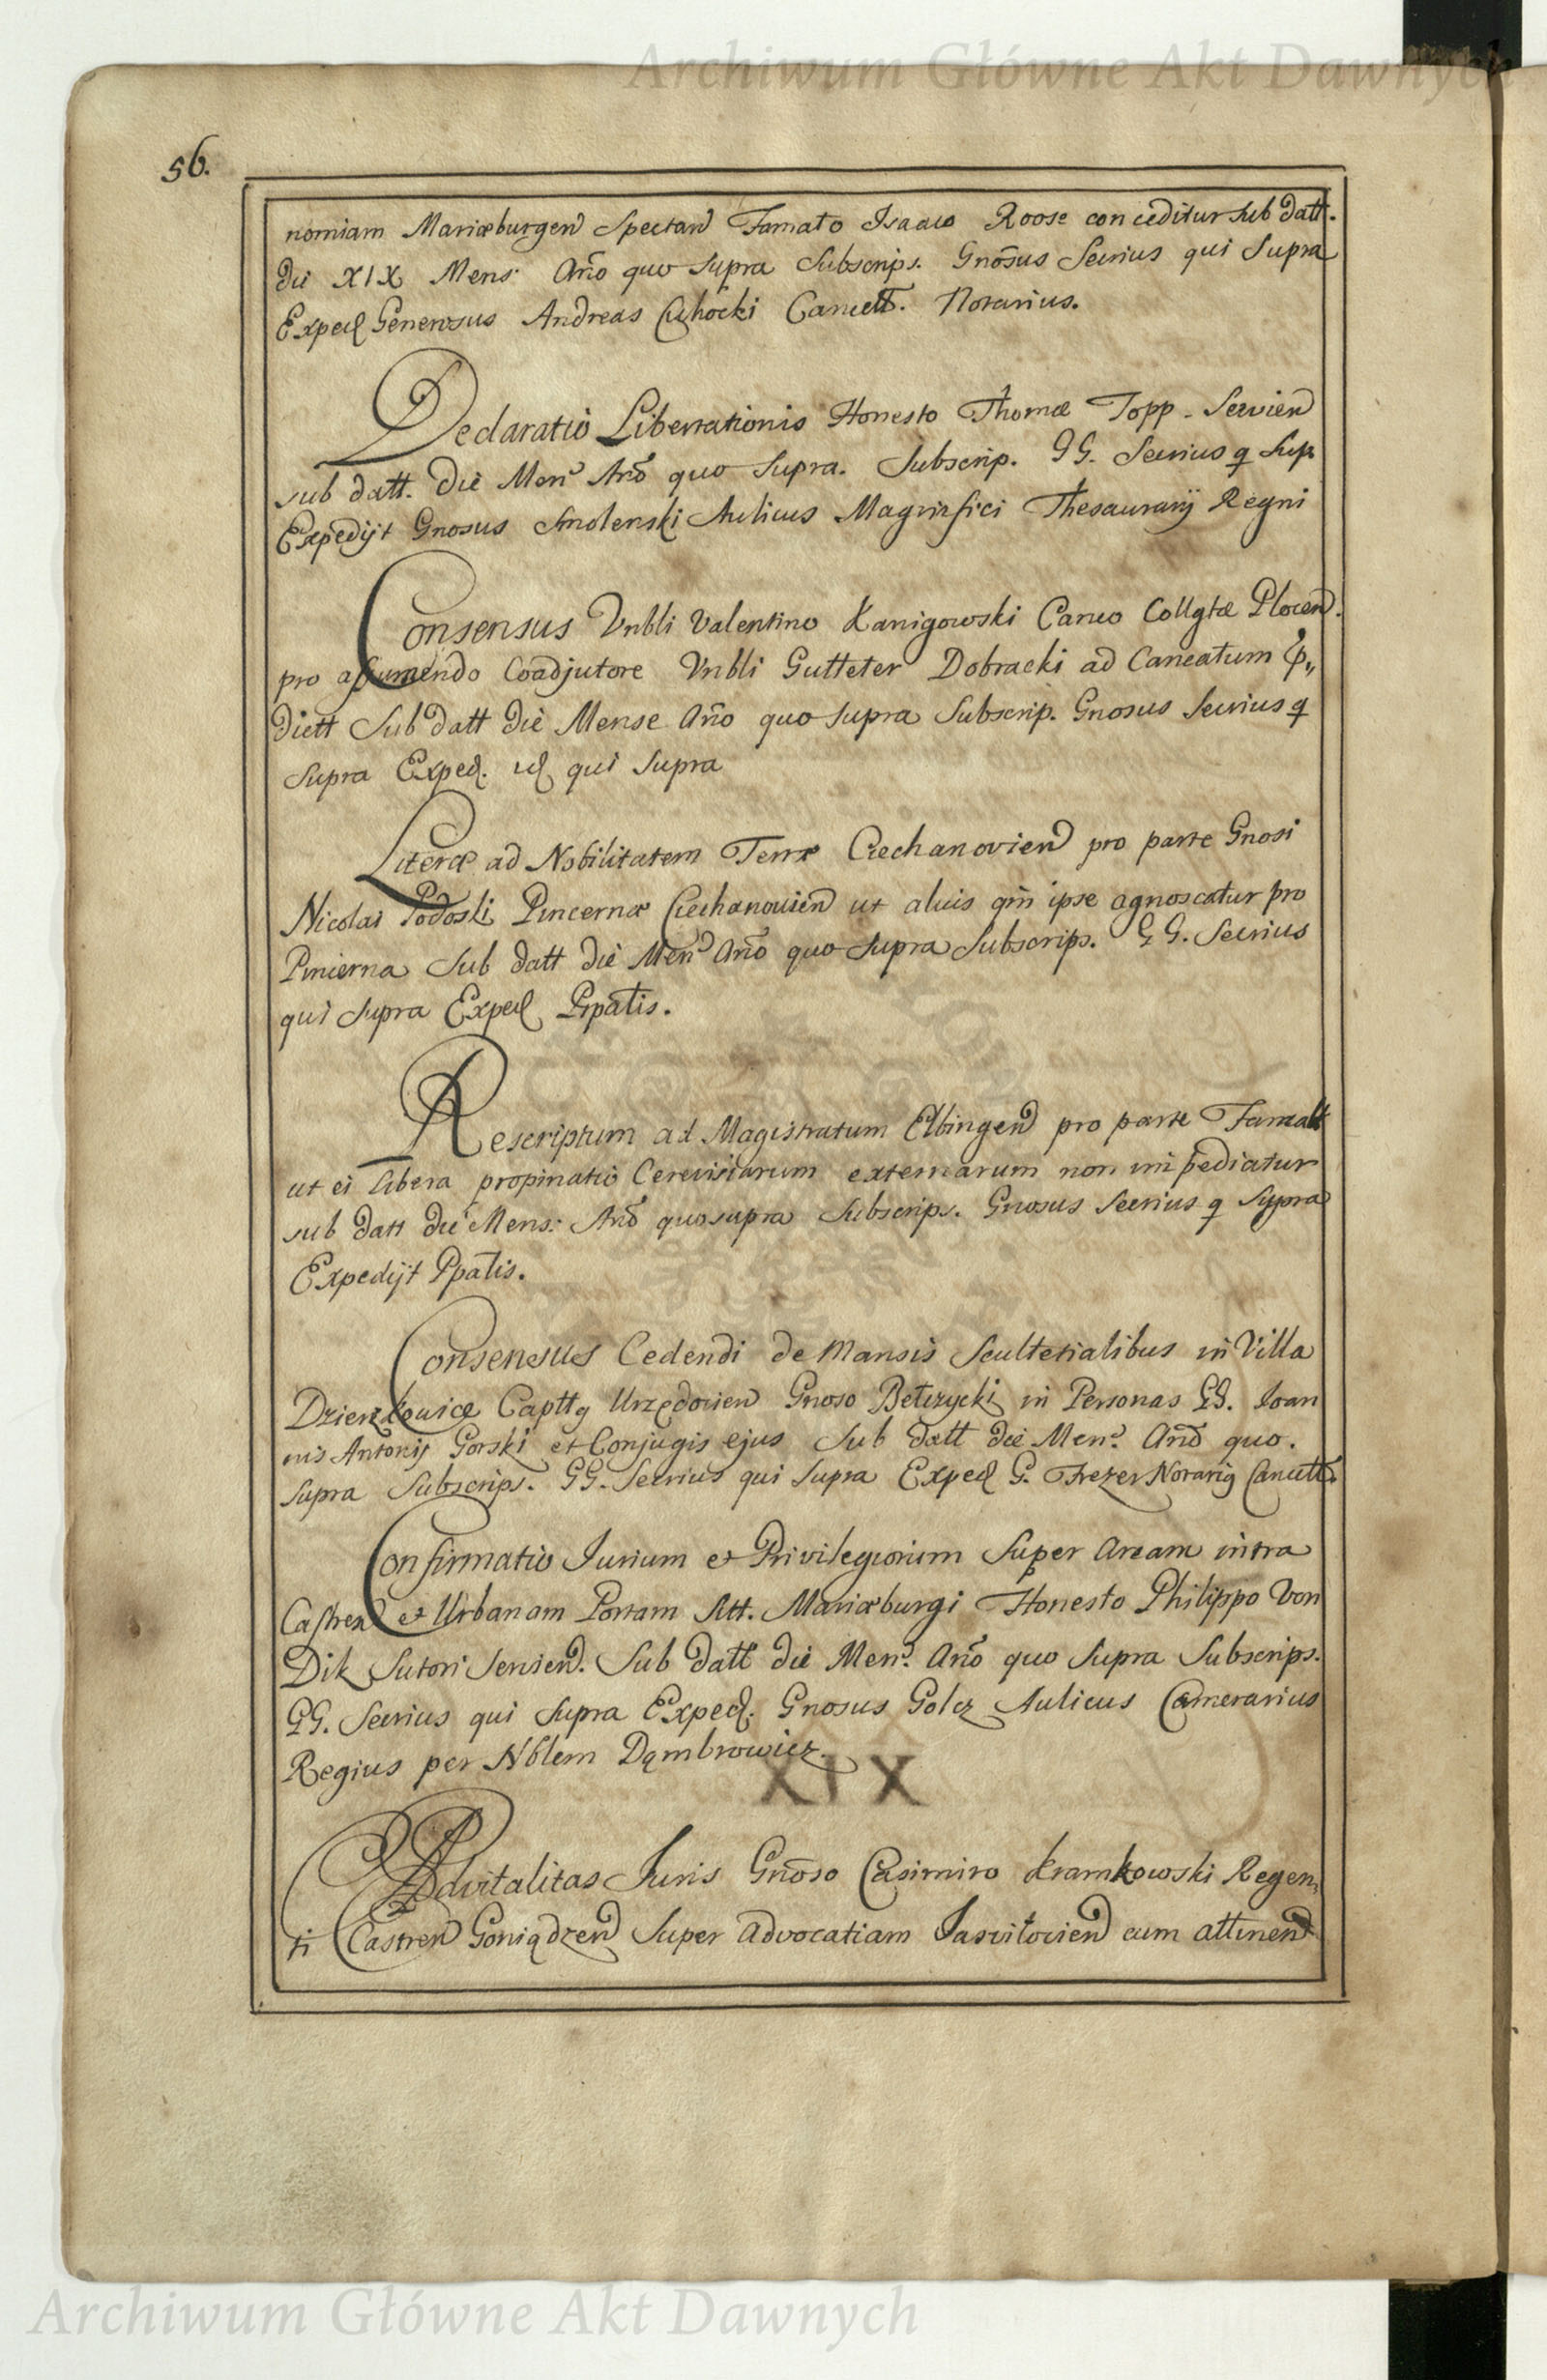 Archiwum Główne Akt Dawnych
56.
nomiam Mariæburgen Spectan Famato Isaaco Roose conceditur sub datt.
die XIX Mens: Año quo supra Subscrips. Gnõsus Secrius qui Supra
Exped Generosus Andreas Cichocki Cancell. Notarius.
Declaratio Libertationis Honesto Thomæ Topp. Servien
sub datt. die Men Año quo supra. Subscrip. GG. Secrius q Sup
Expedijt Gnosus Smolenski Aulicus Magnifici Thesaurarij Regni
Consensus Vnbli Valentino Kanigowski Canco Collgtæ Plocen.
pro assumendo Coadjutore Vnbli Gutteter Dobracki ad Cancatum p„
dictt Sub datt die Mense Año quo supra Subscrip. Gnosus Secrius q
supra Exped. id qui supra
Literæ ad Nobilitatem Terræ Ciechanovien pro parte Gnosi
Nicolai Podoski Pincernæ Ciechanovien ut alius qm ipse agnoscatur pro
Pincerna Sub datt die Men Año quo supra Subscrips. GG. Secrius
qui supra Exped Prpatis.
Rescriptum ad Magistratum Elbingen pro parte Famatt
ut ei Libera propinatio Cerevisiarum externarum non impediatur
sub datt die Mens: Año quo supra Subscrips. Gnosus Secrius q supra
Expedijt Ppatis.
Consensus Cedendi de Mansis Scultetialibus in Villa
Dzierzkowice Capttq Urzędovien Gnoso Bełzycki in Personas GG. Joan
nis Antonij Gorski et Conjugis ejus Sub datt die Men. Año quo.
supra Subscrips. GG. Secrius qui supra Exped G. Frezer Notariq Cancell.
Confirmatio Jurium et Privilegiorum Super Aream intra
Castren et Urbanam Portam Att. Mariæburgi Honesto Philippo Von
Dik Sutori Servien. Sub datt die Men. Año quo supra Subscrips.
GG. Secrius qui supra Exped. Gnosus Golcz Aulicus Camerarius
Regius per Nblem Dąmbrowicz.
XIX
Advitalitas Juris Gnõso Casimiro Kramkowski Regen„
ti Castren Goniądzen Super Advocatiam Jasvilovien cum attinen
Archiwum Główne Akt Dawnych